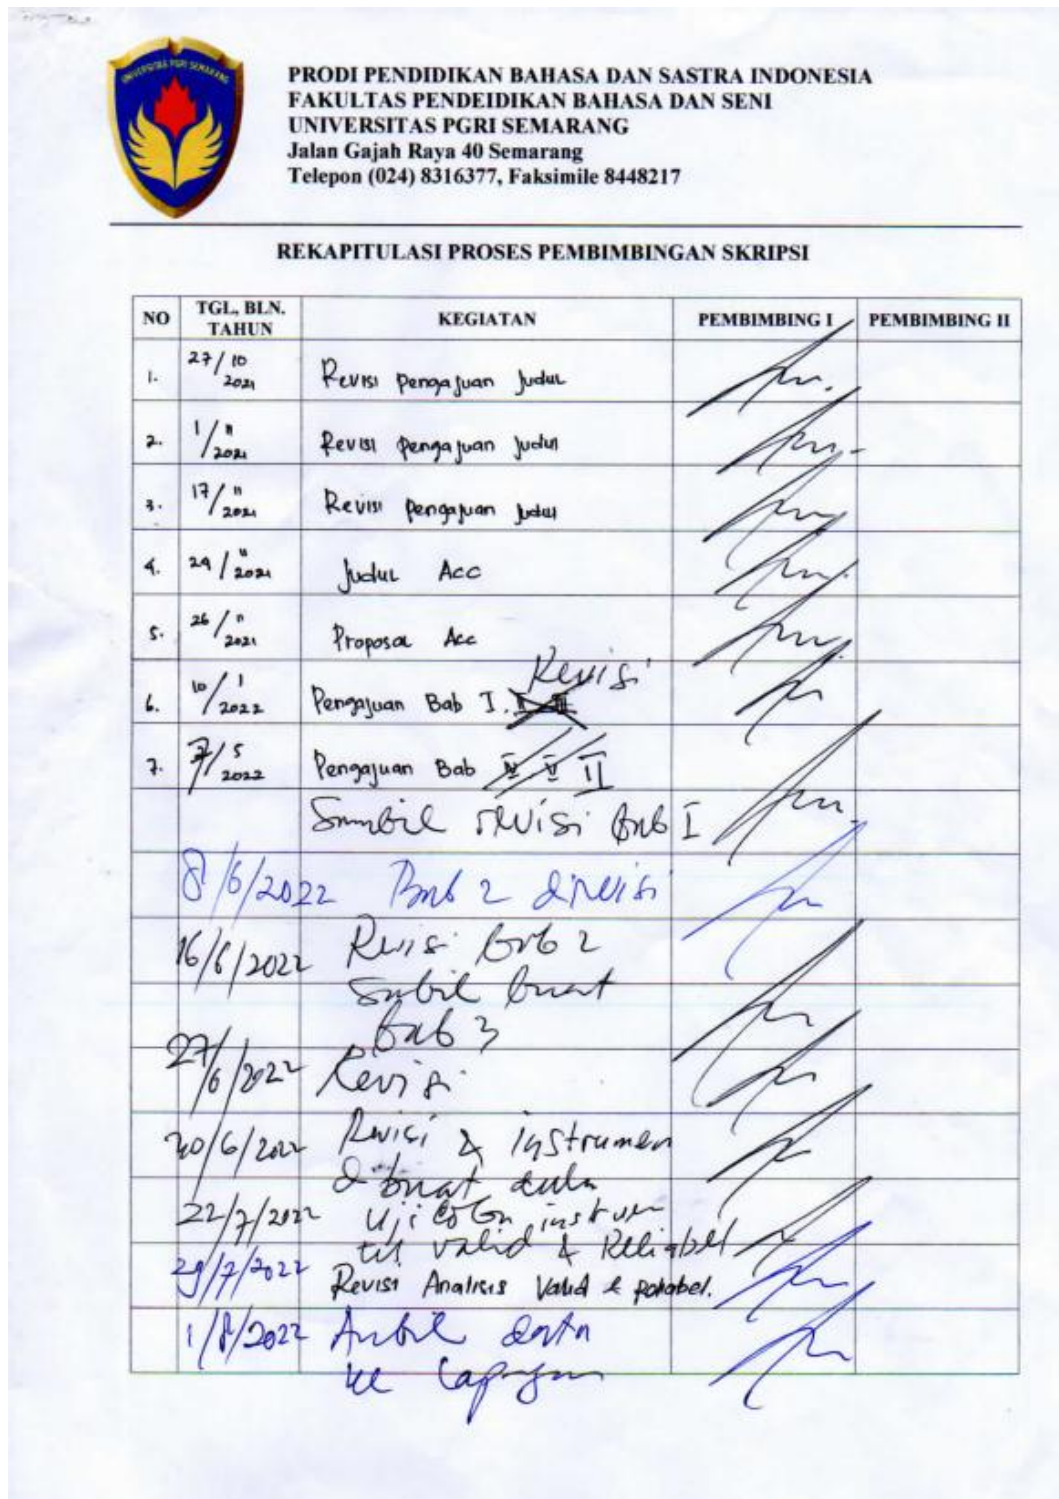 UNIVERSITAS PGRI SEMARANG
PRODI PENDIDIKAN BAHASA DAN SASTRA INDONESIA
FAKULTAS PENDEIDIKAN BAHASA DAN SENI
UNIVERSITAS PGRI SEMARANG
Jalan Gajah Raya 40 Semarang
Telepon (024) 8316377, Faksimile 8448217
REKAPITULASI PROSES PEMBIMBINGAN SKRIPSI
NO TGL, BLN. TAHUN KEGIATAN PEMBIMBING I PEMBIMBING II
1. 27/10 2021 Revisi pengajuan judul
2. 1/11 2021 Revisi pengajuan judul
3. 17/11 2021 Revisi pengajuan judul
4. 24/11 2021 Judul Acc
5. 26/11 2021 Proposal Acc
Revisi
6. 10/1 2022 Pengajuan Bab I. II III
7. 7/5 2022 Pengajuan Bab IV V II
Sambil revisi Bab I
8/6/2022 Bab 2 direvisi
16/6/2022 Revisi Bab 2
Sambil buat
Bab 3
27/6/2022 Revisi
30/6/2022 Revisi & Instrumen
dibuat dulu
22/7/2022 Uji coba instrumen
valid & Reliabel
29/7/2022 Revisi Analisis Valid &
1/8/2022 Ambil data
ke lapangan